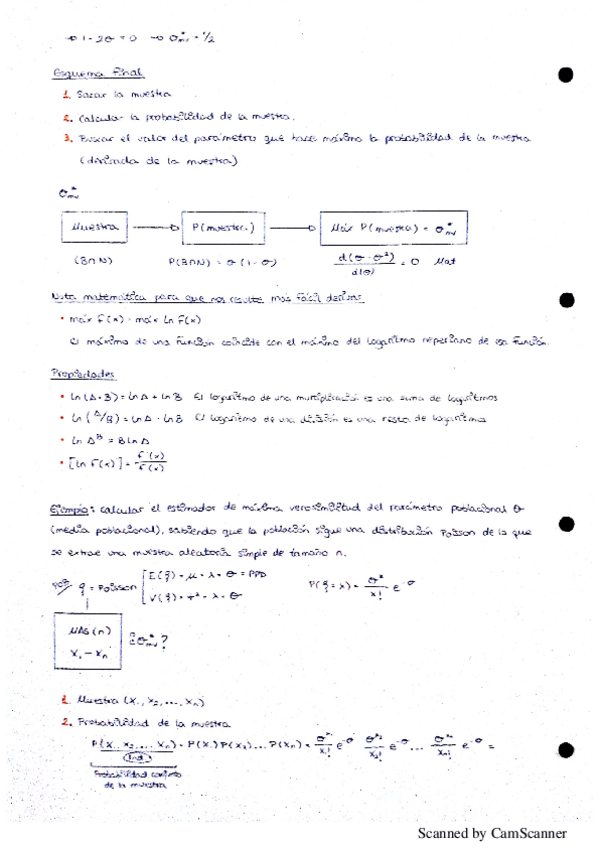 → 1 - 2θ = 0 → θ*mv = 1/2
Esquema final
1. Sacar la muestra
2. Calcular la probabilidad de la muestra.
3. Buscar el valor del parámetro que hace máximo la probabilidad de la muestra
(derivada de la muestra)
θ*mv
Muestra → P(muestra) → Máx P(muestra) = θ*mv
(B∩N) P(B∩N) = θ(1-θ) d(θ-θ²)/d(θ) = 0 Mat
Nota matemática para que nos resulte más fácil derivar
• máx f(x) - máx ln f(x)
El máximo de una función coincide con el máximo del logaritmo neperiano de esa función.
Propiedades
• ln(A·B) = ln A + ln B El logaritmo de una multiplicación es una suma de logaritmos
• ln(A/B) = ln A - ln B El logaritmo de una división es una resta de logaritmos
• ln A^B = B ln A
• [ln f(x)] = f'(x)/f(x)
Ejemplo: calcular el estimador de máxima verosimilitud del parámetro poblacional θ
(media poblacional), sabiendo que la población sigue una distribución Poisson de la que
se extrae una muestra aleatoria simple de tamaño n.
POB ξ = Poisson [E(ξ) = μ = λ = θ = PPD P(ξ = x) = θ^x/x! e^-θ
V(ξ) = σ² = λ = θ
MAS(n)
X₁ - Xn
¿θ*mv?
1. Muestra (x₁, x₂, ..., xn)
2. Probabilidad de la muestra
P(x₁, x₂, ..., xn) = P(x₁) P(x₂) ... P(xn) = θ^x₁/x₁! e^-θ θ^x₂/x₂! e^-θ ... θ^xn/xn! e^-θ =
Ind.
Probabilidad conjunta
de la muestra
Scanned by CamScanner